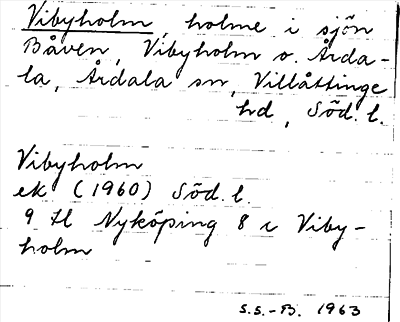 Vibyholm, holme i sjön
Båven, Vibyholm o. Årda-
la, Årdala sn, Villåttinge
hd, Söd. l.
Vibyholm
ek (1960) Söd. l.
9 H Nyköping 8 c Viby-
holm
S.S.-B. 1963